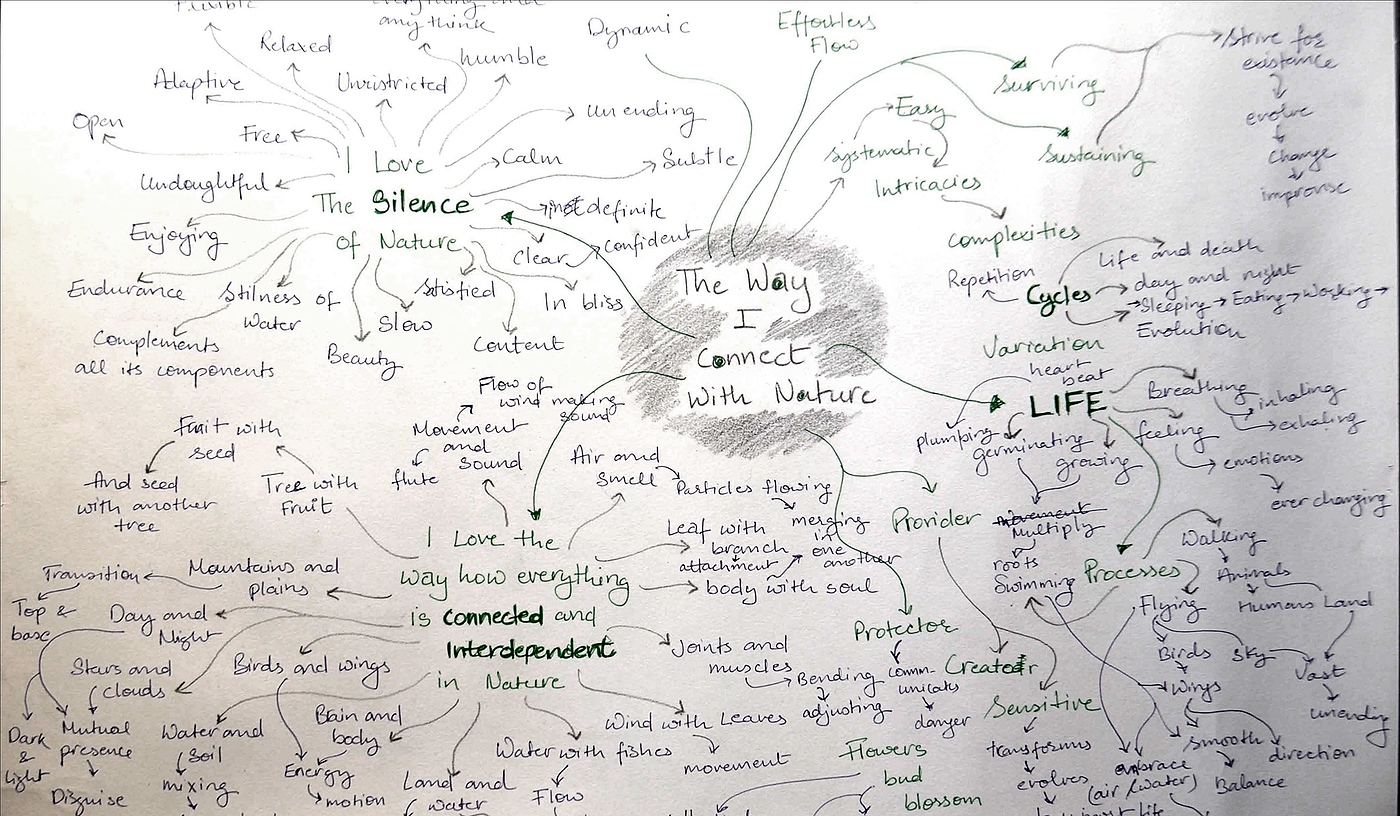 Flexible
any think
Dynamic
Effortless
Flow
Relaxed
humble
Adaptive
Unristricted
Open
Free
Un ending
Calm
Subtle
Undoughtful
I Love
The Silence
of Nature
definite
Clear
Confident
Enjoying
Endurance
Stilness of
Water
Complements
all its components
Beauty
Slow
Satisfied
Content
In bliss
The Way
I
Connect
With Nature
Surviving
Sustaining
Strive for
existance
evolve
Change
improvise
Easy
Systematic
Intricacies
Complexities
Repetition
Cycles
Life and death
day and night
Sleeping → Eating → Working →
Evolution
Variation
heart
beat
LIFE
Breathing
inhaling
exhaling
feeling
emotions
ever changing
plumping
germinating
growing
movement
Multiply
roots
Swimming
Processes
Walking
Animals
Humans Land
Flying
Birds
Sky
Vast
unending
Wings
Smooth
direction
Balance
embrace
(air/water)
Provider
Protector
Comm-
unicats
danger
Createdr
Sensitive
transforms
evolves
Flowers
bud
blossom
I Love the
Way how everything
is connected and
Interdependent
in Nature
Flow of
wind making
sound
Movement
and
Sound
flute
Air and
Smell
Particles flowing
merging
in
one
another
Leaf with
branch
attachment
body with soul
Fruit with
seed
And seed
with another
tree
Tree with
Fruit
Mountains and
plains
Transition
Top &
base
Day and
Night
Dark
&
light
Mutual
presence
Disguise
Stars and
clouds
Birds and wings
Energy
motion
Water and
Soil
mixing
Brain and
body
Land and
Water
Water with fishes
Flow
Wind with Leaves
movement
Joints and
muscles
Bending
adjusting